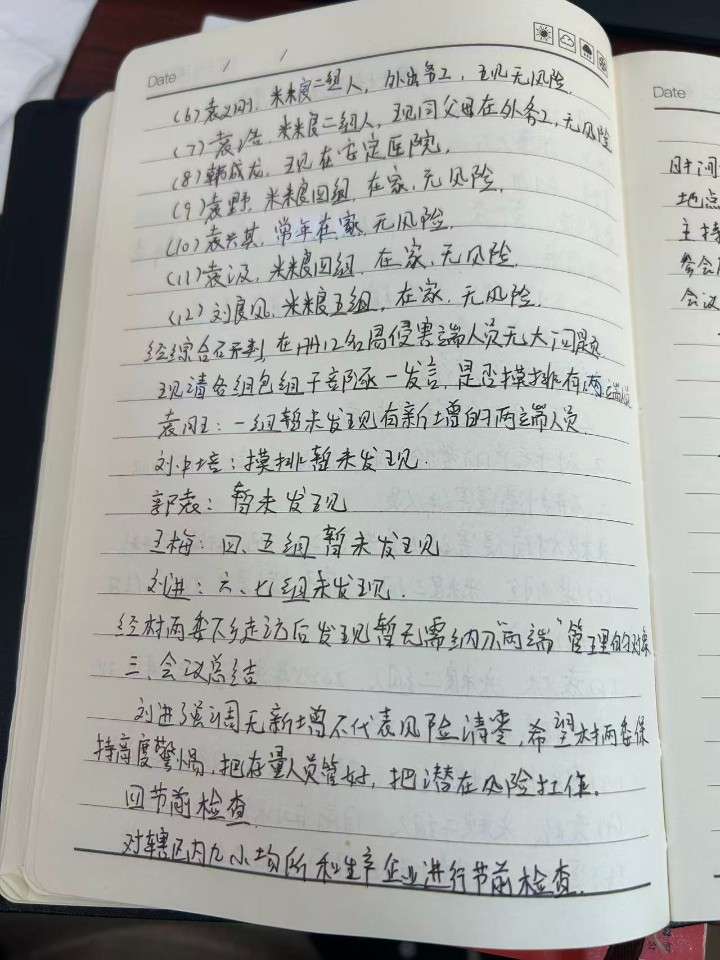 Date / /
(6)袁义刚，米粮二组人，外出务工，现无风险.
(7)袁浩，米粮二组人，现同父母在外务工，无风险
(8)韩成龙，现在安定医院.
(9)袁野，米粮四组，在家，无风险.
(10)袁兴其，常年在家，无风险.
(11)袁汲，米粮四组，在家，无风险.
(12)刘良凤，米粮五组，在家，无风险.
经综合研判，在册12名高侵害端人员无大问题
现请各组包组干部逐一发言，是否摸排有两端
：一组暂未发现有新增的两端人员
刘中培：摸排暂未发现.
郭表：暂未发现
王梅：四、五组暂未发现
刘进：六、七组未发现.
经村两委下乡走访后发现暂无需纳入"两端"管理的对象
三、会议总结
刘进强调无新增不代表风险清零，希望村两委保
持高度警惕，把存量人员管好，把潜在风险工作.
四节前检查
对辖区内九小场所和生产企业进行节前检查.
Date
时间
地点
主持
参会
会议